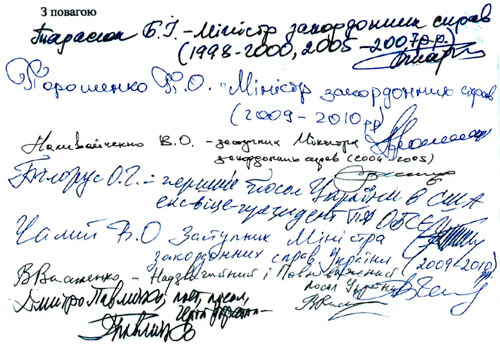 З повагою
Тарасюк Б.І. - Міністр закордонних справ
(1998-2000, 2005-2007р.р.)
Порошенко П.О. Міністр закордонних справ
(2009-2010рр)
Наливайченко В.О. - заступник Міністра
закордонних справ (2004-2005)
Білорус О.Г. - перший Посол України в США
екс-віце-президент ПА ОБСЄ
Чалий В.О Заступник Міністра
закордонних справ України (2009-2010)
В Василенко - Надзвичайний і Повноважний
посол України
Дмитро Павличко, поет, посол,